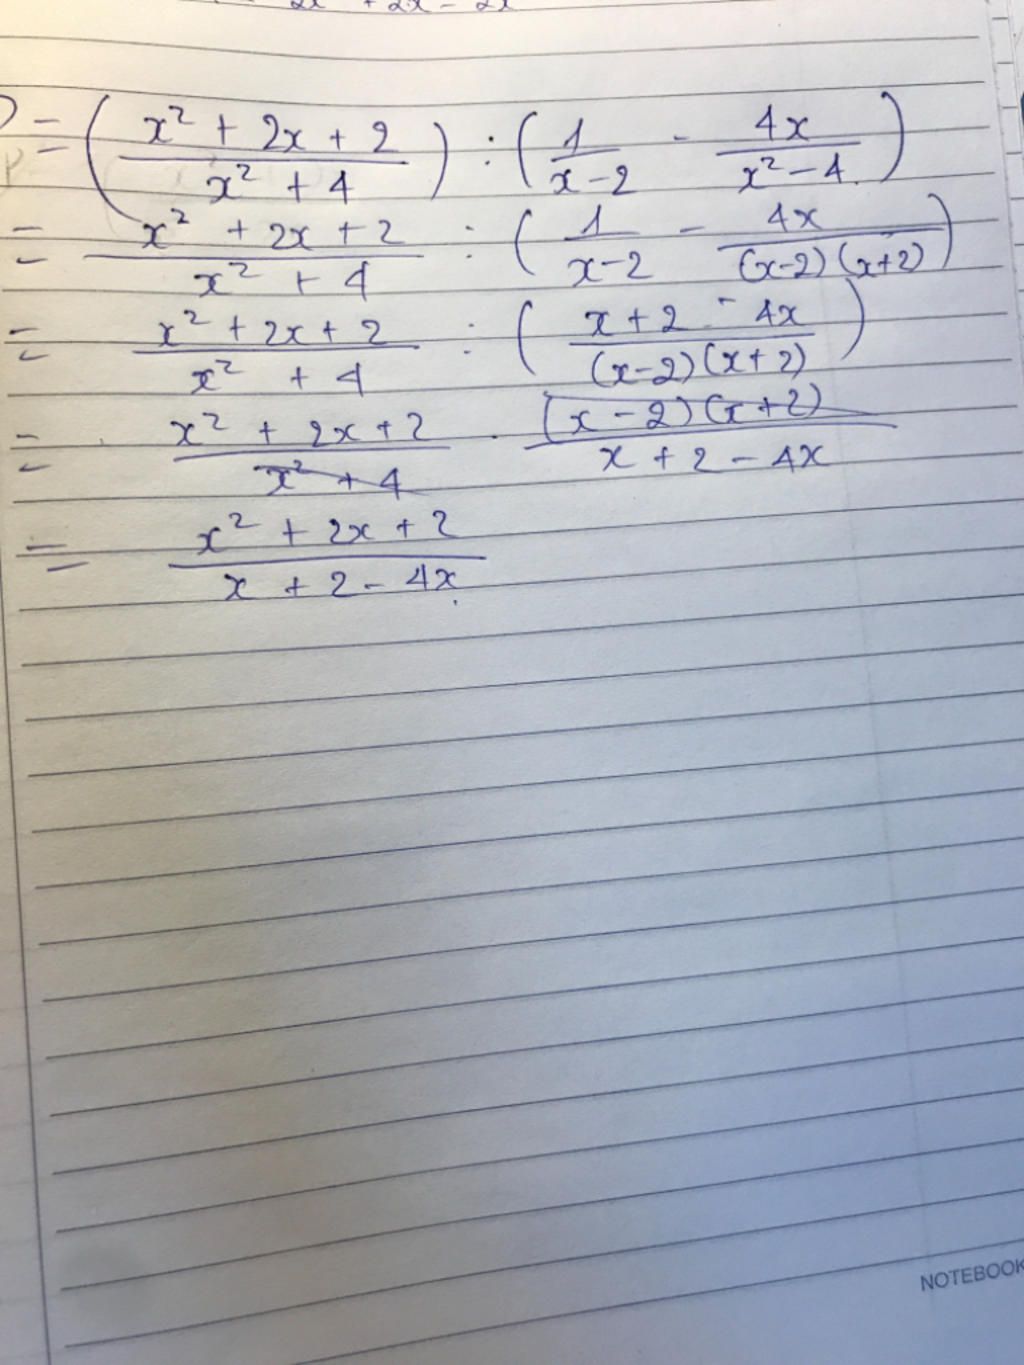 2x + 2x - 2x
P = ( x² + 2x + 2 / x² + 4 ) : ( 1 / x - 2 - 4x / x² - 4 )
= x² + 2x + 2 / x² + 4 : ( 1 / x - 2 - 4x / (x-2)(x+2) )
= x² + 2x + 2 / x² + 4 : ( x + 2 - 4x / (x-2)(x+2) )
= x² + 2x + 2 / x² + 4 . (x - 2)(x + 2) / x + 2 - 4x
= x² + 2x + 2 / x + 2 - 4x
NOTEBOOK